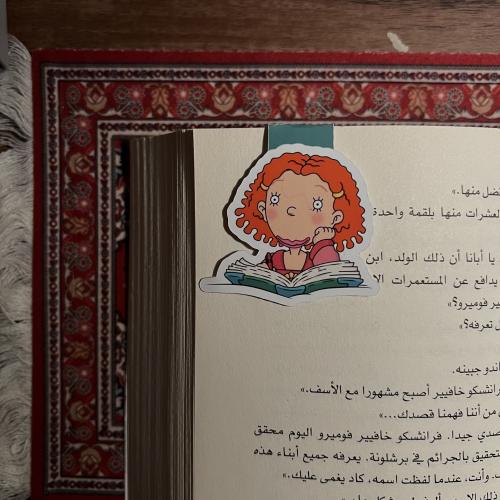 ـضل منها.»
لعشرات منها بلقمة واحدة
يا أبانا أن ذلك الولد، ابن
يدافع عن المستعمرات الا
ير فوميرو؟»
ل تعرفه؟»
اندو جبينه.
رانتشسكو خافيير أصبح مشهورا مع الأسف.»
من أننا فهمنا قصدك...»
صدي جيدا. فرانتشسكو خافيير فوميرو اليوم محقق
تحقيق بالجرائم في برشلونة. يعرفه جميع أبناء هذه
وأنت، عندما لفظت اسمه، كاد يغمى عليك.»